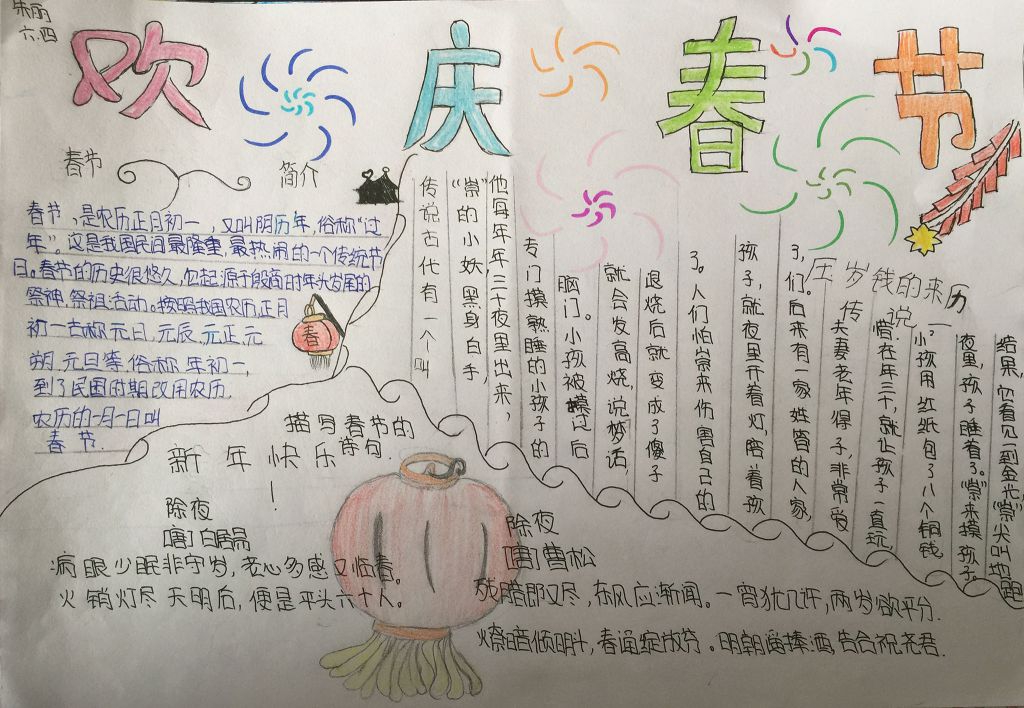 朱丽
六.四
欢庆春节
春节 简介
春节、是农历正月初一，又叫阴历年，俗称“过
年”，这是我国民间最隆重，最热闹的一个传统节
日。春节的历史很悠久，它起源于殷商时年头岁尾的
祭神，祭祖活动。按照我国农历，正月
初一古称元日，元辰，元正，元
朔，元旦等，俗称年初一，
到了民国时期改用农历，
农历的一月一日叫
春节.
压岁钱的来历
传说古代有一个叫
“祟”的小妖，黑身白手，
他每年年三十夜里出来，
专门摸熟睡的小孩子的
脑门。小孩被摸过后
就会发高烧，说梦话，
退烧后就变成了傻子
了。人们怕祟来伤害自己的
孩子，就夜里开着灯，陪着孩
子们。后来有一家姓管的人家，
夫妻老年得子，非常爱
惜.在年三十，就让孩子一直玩，
小孩用红纸包了八个铜钱
夜里，孩子睡着了。“祟”来摸孩子。
结果，它看见到金光，“祟”尖叫地跑
传说一:
描写春节的
诗句.
新年快乐！
除夜
[唐]白居易
病眼少眠非守岁，老心多感又临春。
火销灯尽天明后，便是平头六十人。
除夜
[唐]曹松
残腊即又尽，东风应渐闻。一宵犹几许，两岁欲平分.
燎暗倾时斗，春通绽放芬。明朝遥捧酒，告合祝尧君.
春